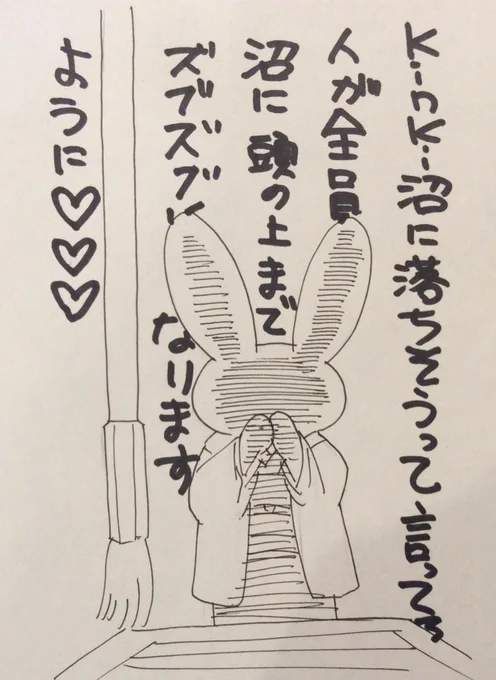 KinKi沼に落ちそうって言ってる
人が全員
沼に頭の上まで
ズブズブに
なります
ように♡♡♡